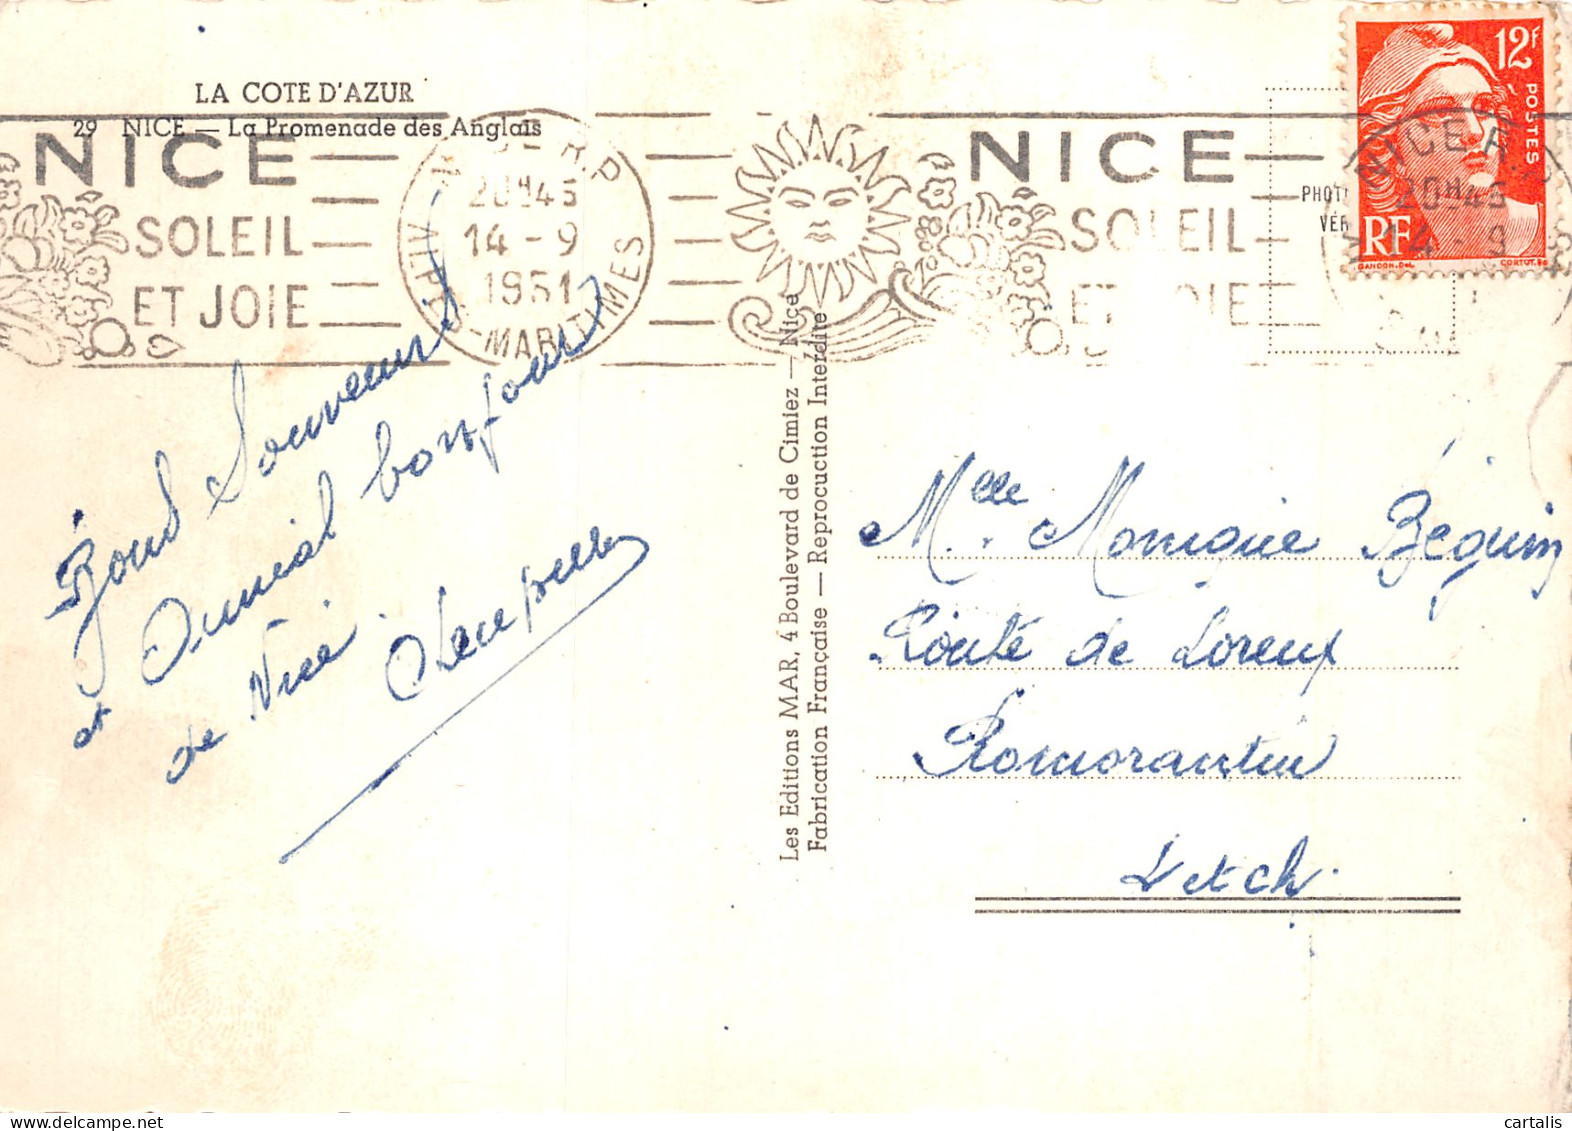 LA COTE D'AZUR
29 NICE — La Promenade des Anglais
NICE
SOLEIL
ET JOIE
NICE R.P
20H45
14 - 9
1951
ALPES-MARITIMES
NICE
SOLEIL
ET JOIE
PHOT
VÉR
12F
POSTES
RF
GANDON.DEL
CORTOT.SC
NICE R.P
20H45
14 - 9
Bond Souvenir
et Amical bonjour
de Nice.
Melle Monique Béguin
Route de Loreux
Romorantin
L et ch.
Les Editions MAR, 4 Boulevard de Cimiez — Nice
Fabrication Française — Reprocuction Interdite
delcampe.net
cartalis